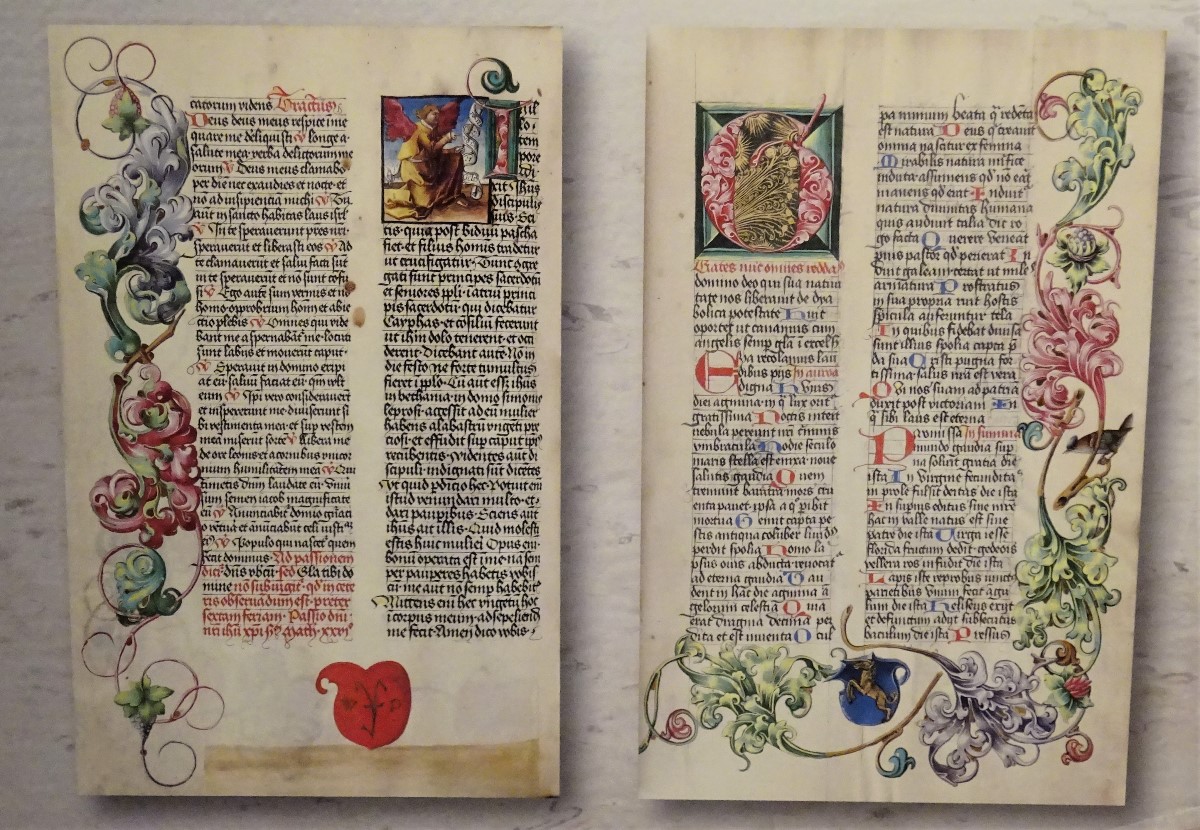 catorum videns Tractus
Deus deus meus respice i me
quare me deliquisti V longe a
salute mea verba delictorum me
orum V Deus meus clamabo
per diē nec exaudies et nocte et
no ad insipientia michi V Tu
aūt in sancto habitas laus isrl
V In te speraverunt prēs nri
speraverunt et liberasti eos V Ad
te clamaverūt et salvi facti sūt
in te speraverūt et nō sunt cōfu
si V Ego autē sum vermis et nō
homo opprobrium homī et abie
ctio plebis V Omnes qui vide
bant me aspernabāt me locuti
sunt labiis et moverūt caput
V Speravit in domino eripi
at eū salvū faciat eū qm vult
eum V Ipi vero consideraverūt
et inspexerunt me diviserunt si
bi vestimenta mea et sup vestem
mea miserūt sortē V Libera me
de ore leonis et a cornibus unicor
nuum humilitatem mea V Qui
timetis dnm laudate eū univ
sum semen iacob magnificate
eū V Annunciabit domino gñaci
o vētura et anūciabūt celi iusticiā
ei V Populo qui nascet quem
fecit dominus Ad passionem
dicit dns vbcū sed Gla tibi do
mine no subiungit qd in cete
ris observādum est preter
sextam feriam Passio dni
nri ihū xpi scdm Math xxvi
In il
lo
tem
pore
dixit ihus
discipulis
suis Sci
tis quia post biduū pascha
fiet et filius homīs tradetur
ut crucifigatur Tunc ogre
gati sunt principes sacerdotū
et seniores ppli i atriū princi
pis sacerdotū qui dicebatur
Cayphas et cōsiliū fecerunt
ut ihm dolo tenerent et occi
derent Dicebant autē Nō in
die festo ne forte tumultus
fieret i pplo Cū aut ess ihus
in bethania in domo simonis
leprosi accessit ad eū mulier
habens alabastrū ungēti pre
ciosi et effudit sup caput ipi
recūbentis Videntes aut di
scipuli indignati sūt dicētes
Ut quid pditio hec Potuit eni
istud venundari multo et
dari pauperibus Sciens aut
ihus ait illis Quid molesti
estis huic mulieri Opus eni
bonū operata est i me nā sem
per pauperes habetis vobis
cū me aut no semp habebit
Mittens eni hec ungētū hoc
i corpus meum ad sepeliendū
me fecit Amen dico vobis
Grates nūc omnes redda
domino deo qui sua nativi
tate nos liberavit de dya
bolica potestate Huic
oportet ut canamus cum
angelis semp gla i excelsis
Eya recolamus lau
dibus piis In aurora
digna Huius
diei carmina in q lux orit
gratissima Noctis interit
nebula pereunt nri cīminis
umbracula Hodie seculo
maris stella est enixa nove
salutis gaudia Quem
tremunt baratra mors cru
enta pavet ipsa a q pibit
mortua Gemit capta pe
stis antiqua coliber livid
perdit spolia Homo la
psus ovis abducta revocat
ad eterna gaudia Gau
dent in hac die agmina a
gelorum celestia Quia
erat dragma decima per
dita et est inventa O cul
pa nimium beata q redēpta
est natura Deus q creavit
omnia nascitur ex femina
Mirabilis natura mifice
induta assumens qd no erāt
manens qd erat Induit
natura divinitas humana
quis audivit talia dic ro
go facta Querere venerat
pius pastor qd perierat In
duit galeam certat ut mile
armatura Prostratus
in sua propria ruit hostis
spicula auferuntur tela
In quibus fidebat divisa
sunt illius spolia capta p
da sua Cristi pugna for
tissima salus nra est vera
Qi nos suam ad patria
duxit post victoriam In
q sibi laus est eterna
Promissa In summa
mundo gaudia sup
na solvit gratia die
ista In virgine fecundita
in prole fulsit deitas die ista
In supnis editus sine mre
hac in valle natus est sine
patre die ista Virga iesse
florida fructum dedit gedeois
vellera ros infudit die ista
Lapis iste reprobus iunct
parietibus Unum fecit agu
lum die ista Heliseus exiit
et defunctum adiit subsecutus
baculum die ista Pressus